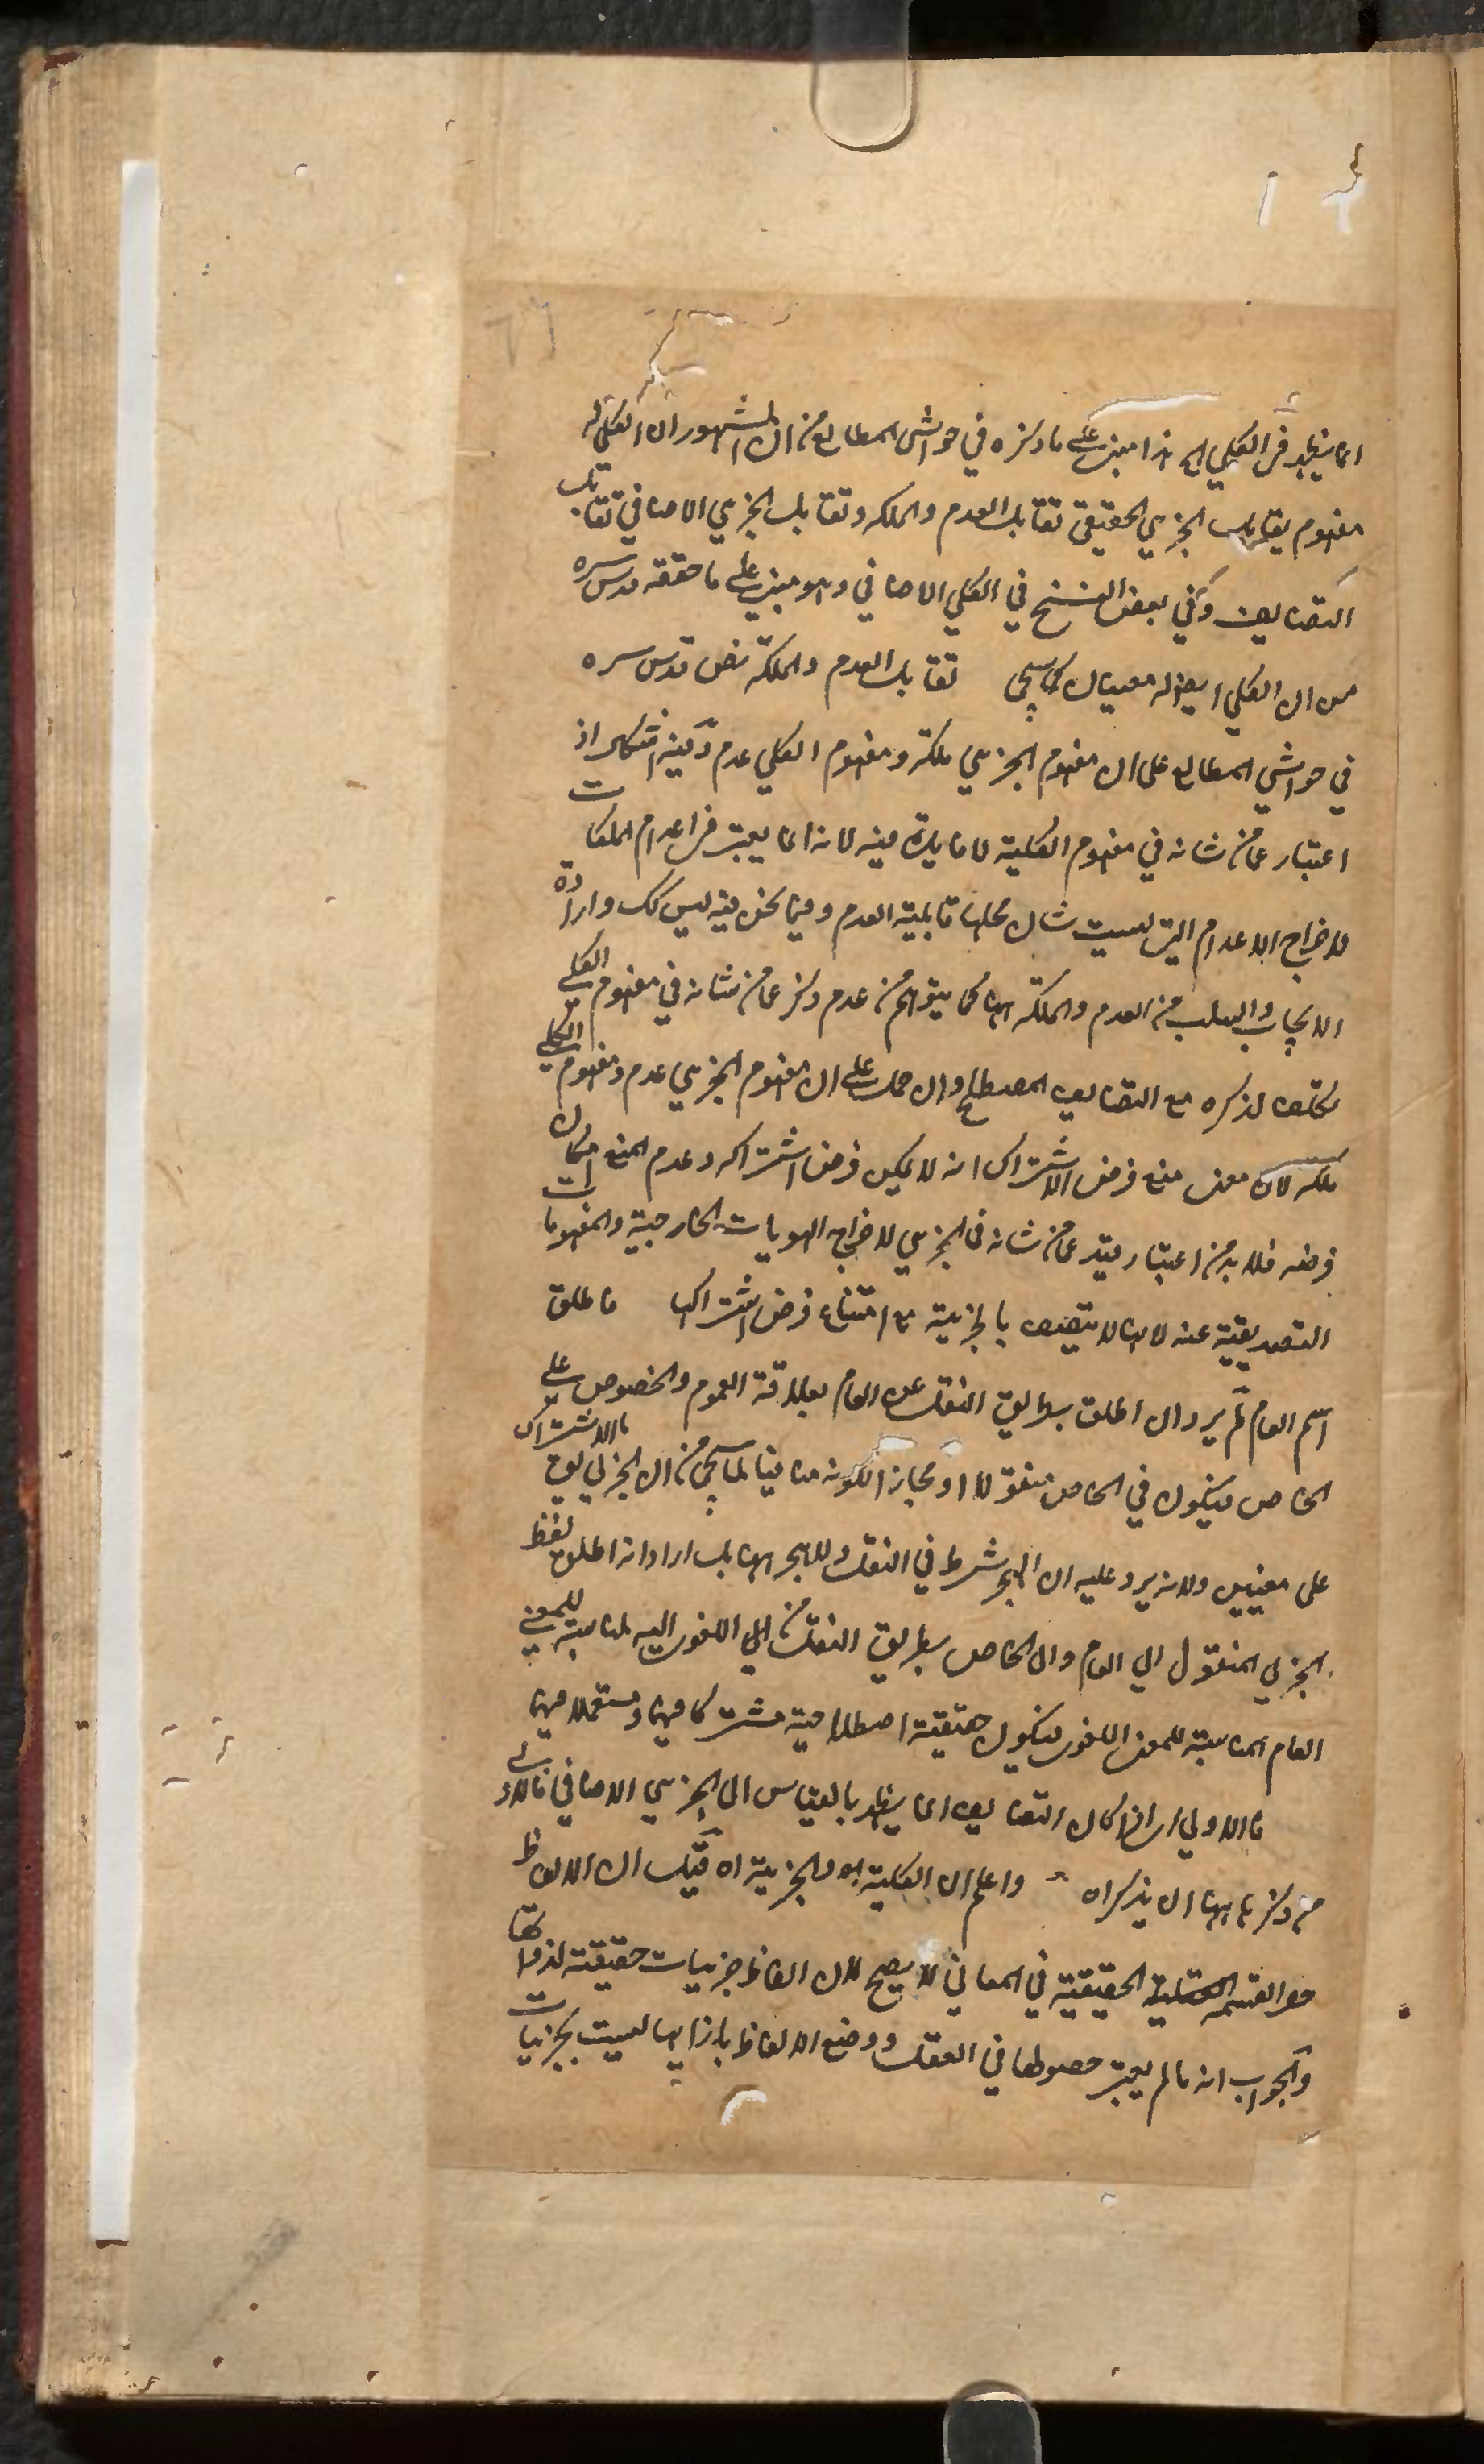 انما يظهر في الكلي اه هذا مبني على ما ذكره في حواشي المطالع من ان المشهور ان الكلي له
مفهوم يقابل الجزئي الحقيقي تقابل العدم والملكه وتقابل الجزئي الاضافي تقابل
التضايف وفي بعض النسخ في الكلي الاضافي وهو مبني على ما حققه قدس سره
من ان الكلي ايضا له معنيان كما سيجي تقابل العدم والملكة نص قدس سره
في حواشي المطالع على ان مفهوم الجزئي ملكة ومفهوم الكلي عدم وفيه اشكال اذ
اعتبار عما من شانه في مفهوم الكلية لا فايدة فيه لانه انما يعتبر في اعدام الملكات
لاخراج الاعدام التي ليست شان محلها قابلية العدم وفيما نحن فيه ليس كك وارادة
الايجاب والسلب من العدم والملكة ههنا كما يتوهم من عدم ذكر عما من شانه في مفهوم الكلي
تكلف لذكره مع التضايف المصطلح وان حمل على ان مفهوم الجزئي عدم ومفهوم الكلي
ملكه لان معنى منع فرض الاشتراك انه لا يمكن فرض اشتراكه وعدم المنع امكان
فرضه فلا بد من اعتبار قيد عما من شانه في الجزئي لاخراج الهويات الخارجية والمفهومات
التصديقية عنه لانها لا تتصف بالجزئية مع امتناع فرض اشتراكها فاطلق
اسم العام لم يرد ان اطلق بطريق النقل عن العام بعلاقة العموم والخصوص على
الخاص فيكون في الخاص منقولا او مجازا لكونه منافيا لما سيجي من ان الجزئي يق بالاشتراك
على معنيين ولانه يرد عليه ان الهجر شرط في النقل ولا هجر ههنا بل اراد انه اطلق لفظ
الجزئي المنقول الى العام والى الخاص بطريق النقل من المعنى اللغوي اليه لمناسبة للمعنى
العام المناسبة للمعنى اللغوي فيكون حقيقة اصطلاحية مشتركا فيهما ومستعملا فيهما
فالاولى اي اذا كان التضايف انما يظهر بالقياس الى الجزئي الاضافي فالاولى
من ذكرها ههنا ان يذكراه واعلم ان الكلية والجزئية اه قيل ان الالفاظ
حصر القسمة العقلية الحقيقية في المعاني لا يصح لان الفاظ جزئيات حقيقة لذواتها
والجواب انه ما لم يعتبر حصولها في العقل ووضع الالفاظ بازائها ليست بجزئيات